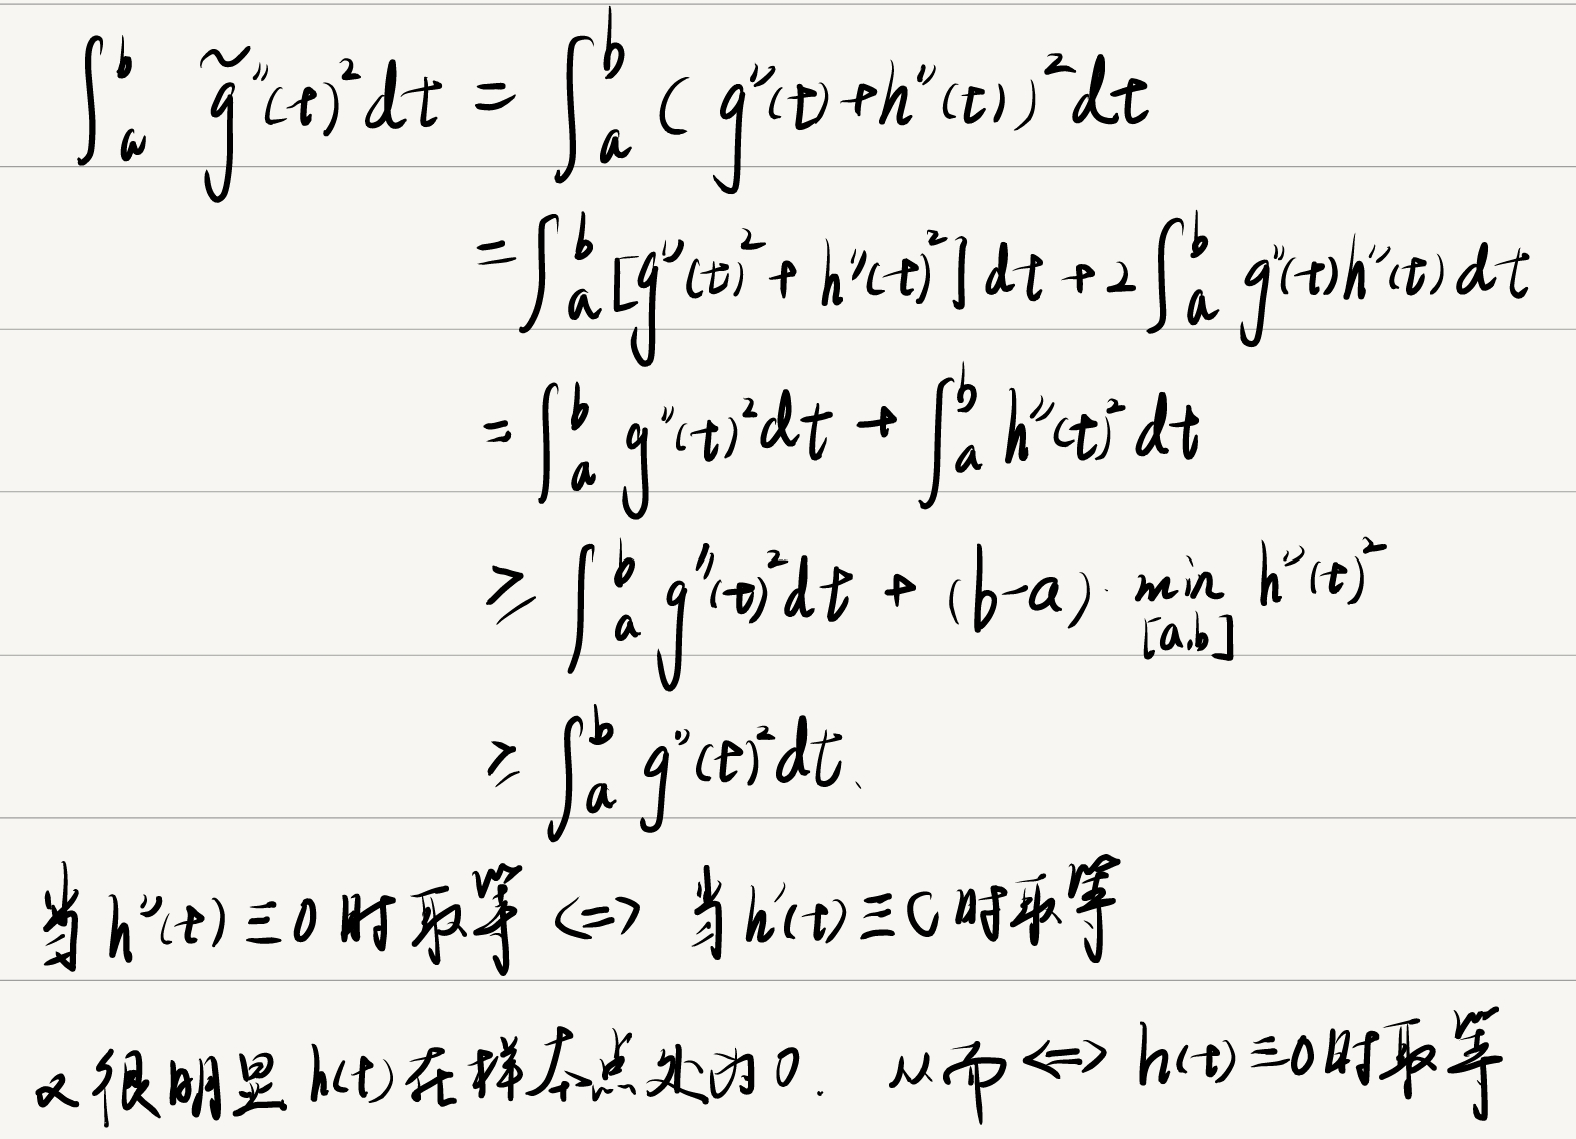 ∫_a^b g̃''(t)²dt = ∫_a^b (g''(t)+h''(t))²dt
= ∫_a^b [g''(t)²+h''(t)²]dt + 2∫_a^b g''(t)h''(t)dt
= ∫_a^b g''(t)²dt + ∫_a^b h''(t)²dt
≥ ∫_a^b g''(t)²dt + (b-a)·min_[a,b] h''(t)²
≥ ∫_a^b g''(t)²dt、
当h''(t)≡0时取等<=>当h'(t)≡C时取等
又很明显h(t)在样本点处为0. 从而<=>h(t)≡0时取等